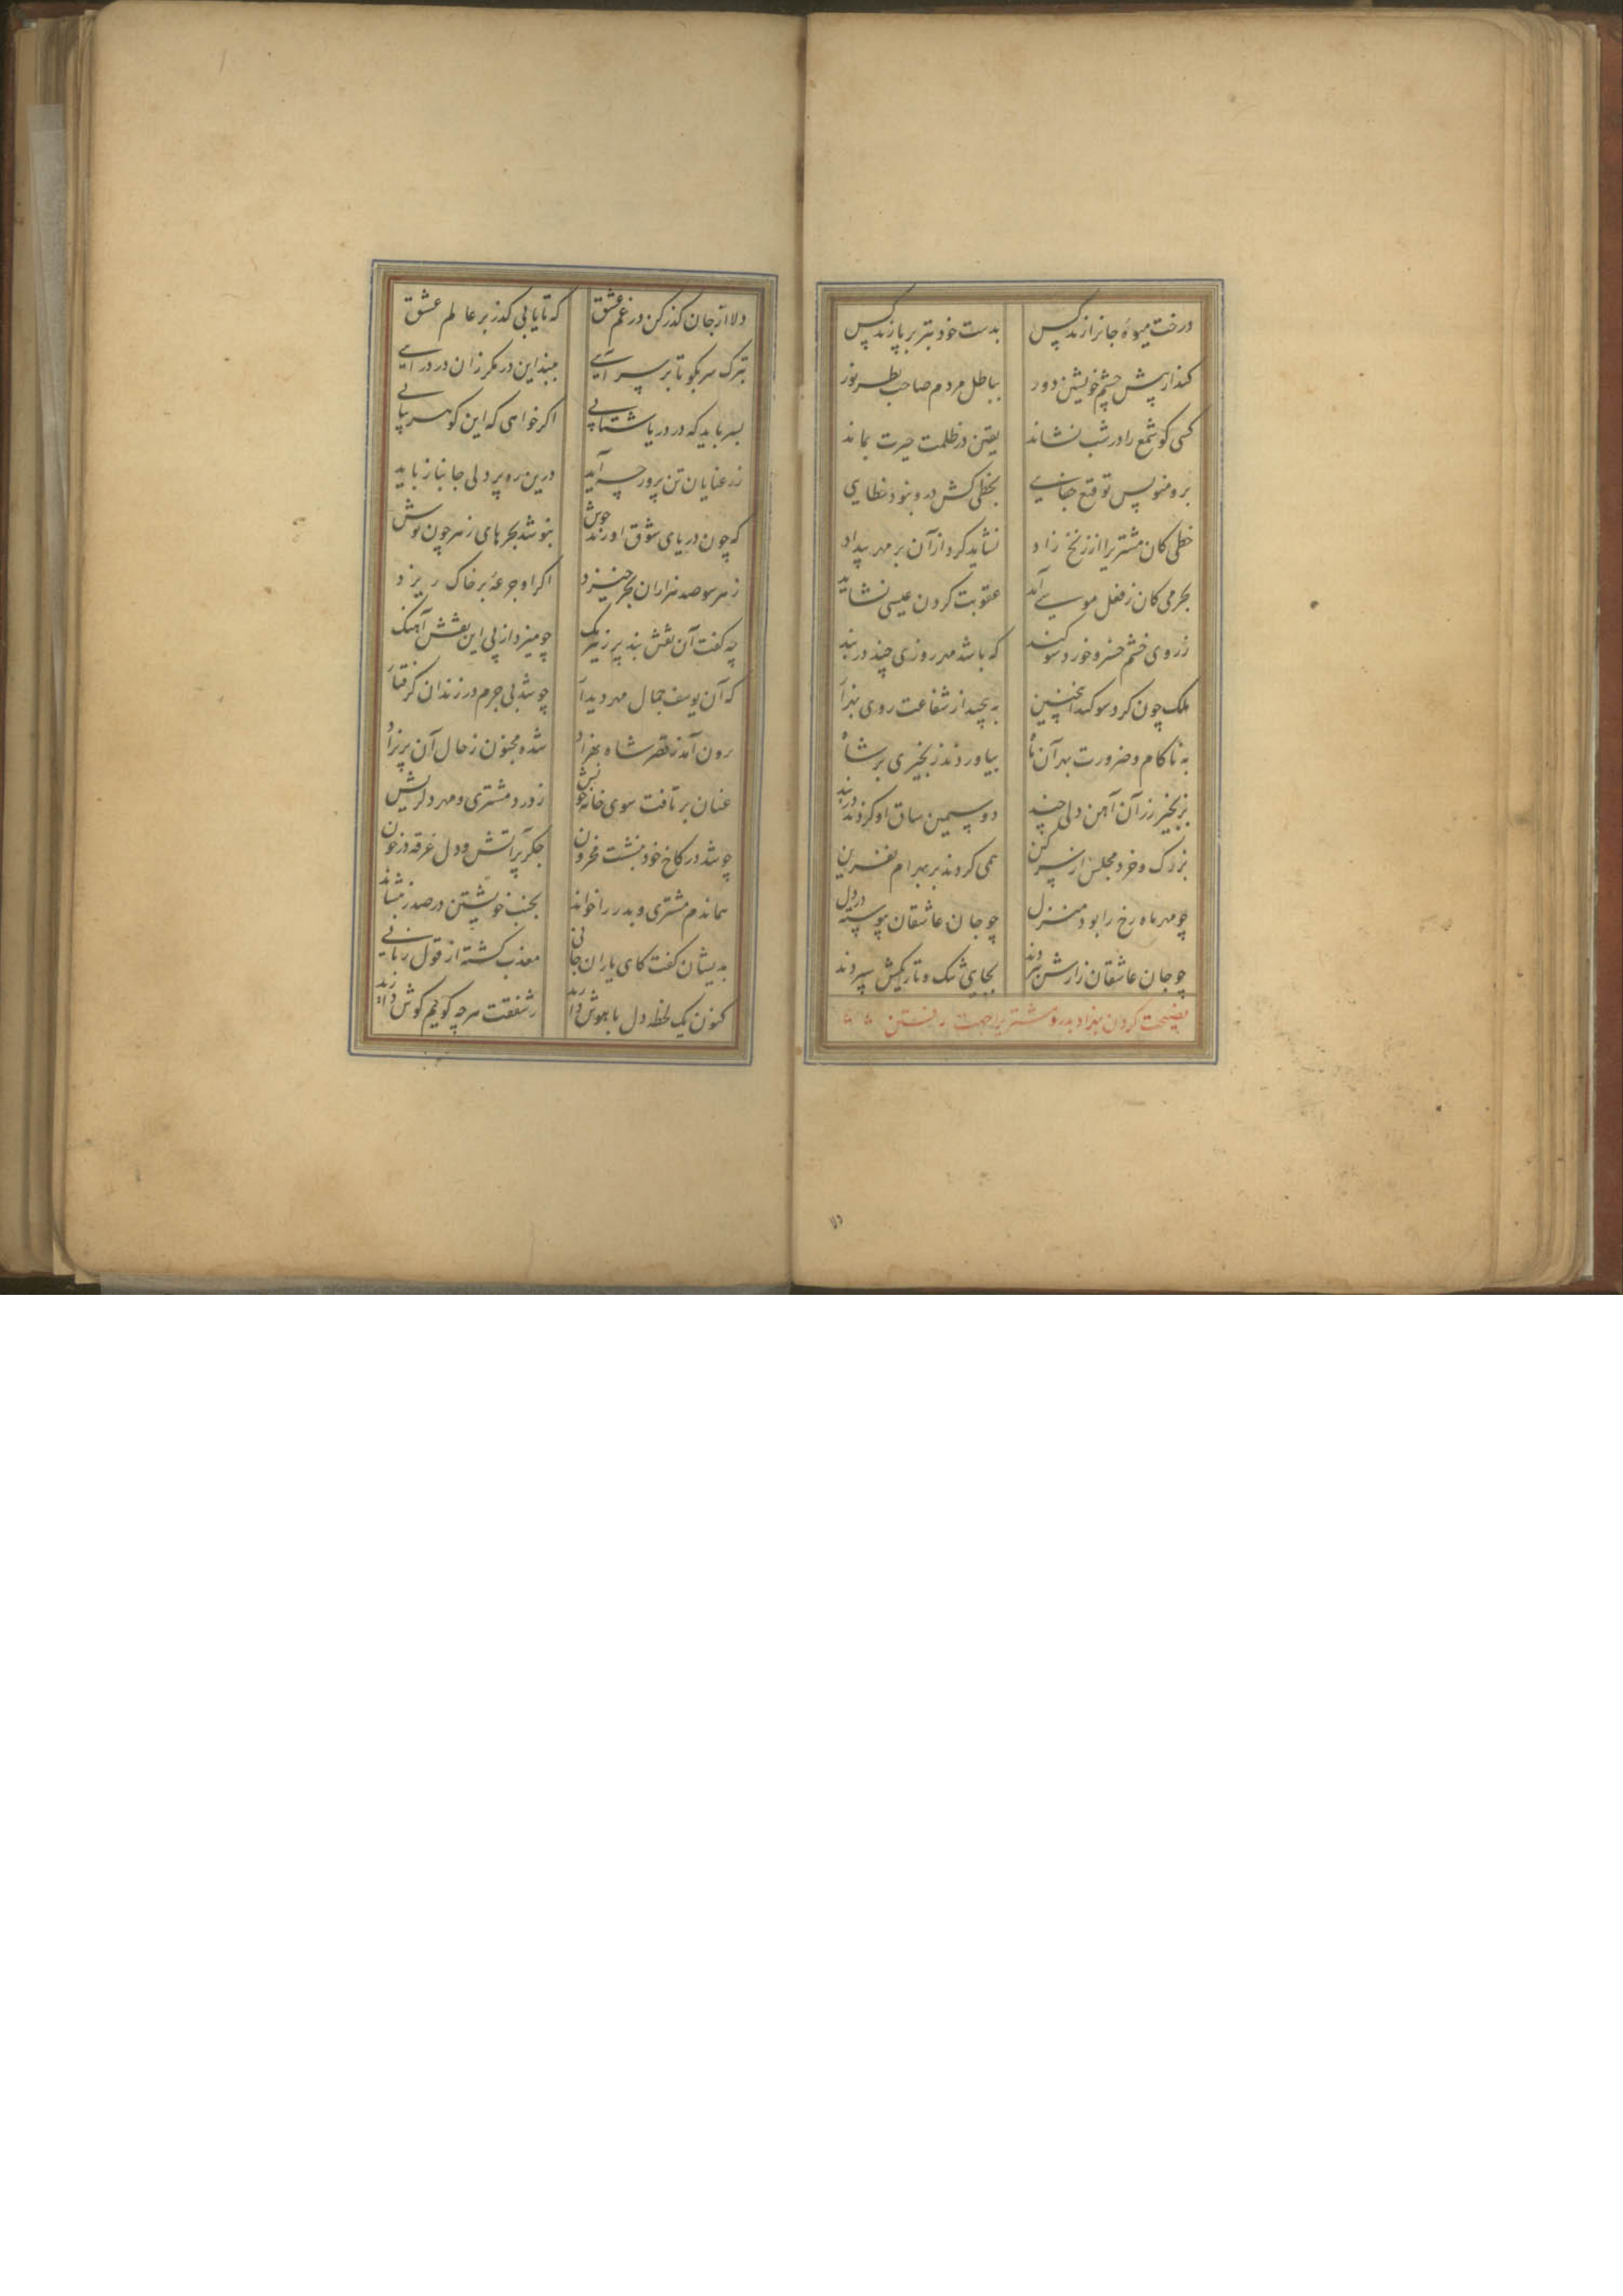 درخت میوهٔ جانرا زند کس بدست خود تبر بر پا زند پس
کند از پیش چشم خویشتن دور بباطل مردم صاحب نظر نور
کسی کو شمع را در شب نشاند یقین در ظلمت حیرت بماند
برو منویس توقیع جفایی بخطی کش درو نبود خطایی
خطی کان مشتریرا از زنخ زاد نشاید کرد از آن بر مهر بیداد
بجرمی کان ز فعل موسی آید عقوبت کردن عیسی نشاید
ز روی خشم خسرو خورد سوکند که باشد مهر روزی چند در بند
ملک چون کرد سوکند اینچنین به پیچید از شفاعت روی بهزاد
به ناکام و ضرورت بهر آن ماه بیاوردند زنجیری بر شاه
بزنجیر زر آن آهن دلی چند دو سیمین ساق او کردند در بند
بزرک و خرد مجلس از سر کین همی کردند بر بهرام نفرین
چو مهر ماه رخ را بود منزل چو جان عاشقان پیوسته در دل
چو جان عاشقان زارش ببردند بجای تنک و تاریکش سپردند
نصیحت کردن بهزاد بدر و مشتریرا جهت رفتن
دلا از جان کذر کن در غم عشق که تا یابی کذر بر عالم عشق
بترک سر بکو تا بر سر آیی ببند این در مکر زان در درآیی
بسر باید که در دریا شتابی اکر خواهی که این کوهر بیابی
ز رعنایان تن پرور چه آید درین ره پر دلی جانباز باید
که چون دریای شوق او زند جوش بنوشد بحرهای زهر چون نوش
ز هر سو صد هزاران بحر خیزد اکر او جرعهٔ بر خاک ریزد
چه کفت آن نقش بند پیر نیرنک چو میزد از پی این نقش آهنک
که آن یوسف جمال مهر دیدار چو شد بی جرم در زندان کرفتار
برون آمد ز قصر شاه بهزاد شده مجنون ز حال آن پریزاد
عنان بر تافت سوی خانه خویش ز درد مشتری و مهر دلریش
چو شد در کاخ خود بنشست محزون جکر پر آتش و دل غرقه در خون
هماندم مشتری و بدر را خواند بجنب خویشتن در صدر بنشاند
بدیشان کفت کای یاران جانی معذب کشته از قول زبانی
کنون یک لحظه دل با هوش دارید ز شفقت هر چه کویم کوش دارید